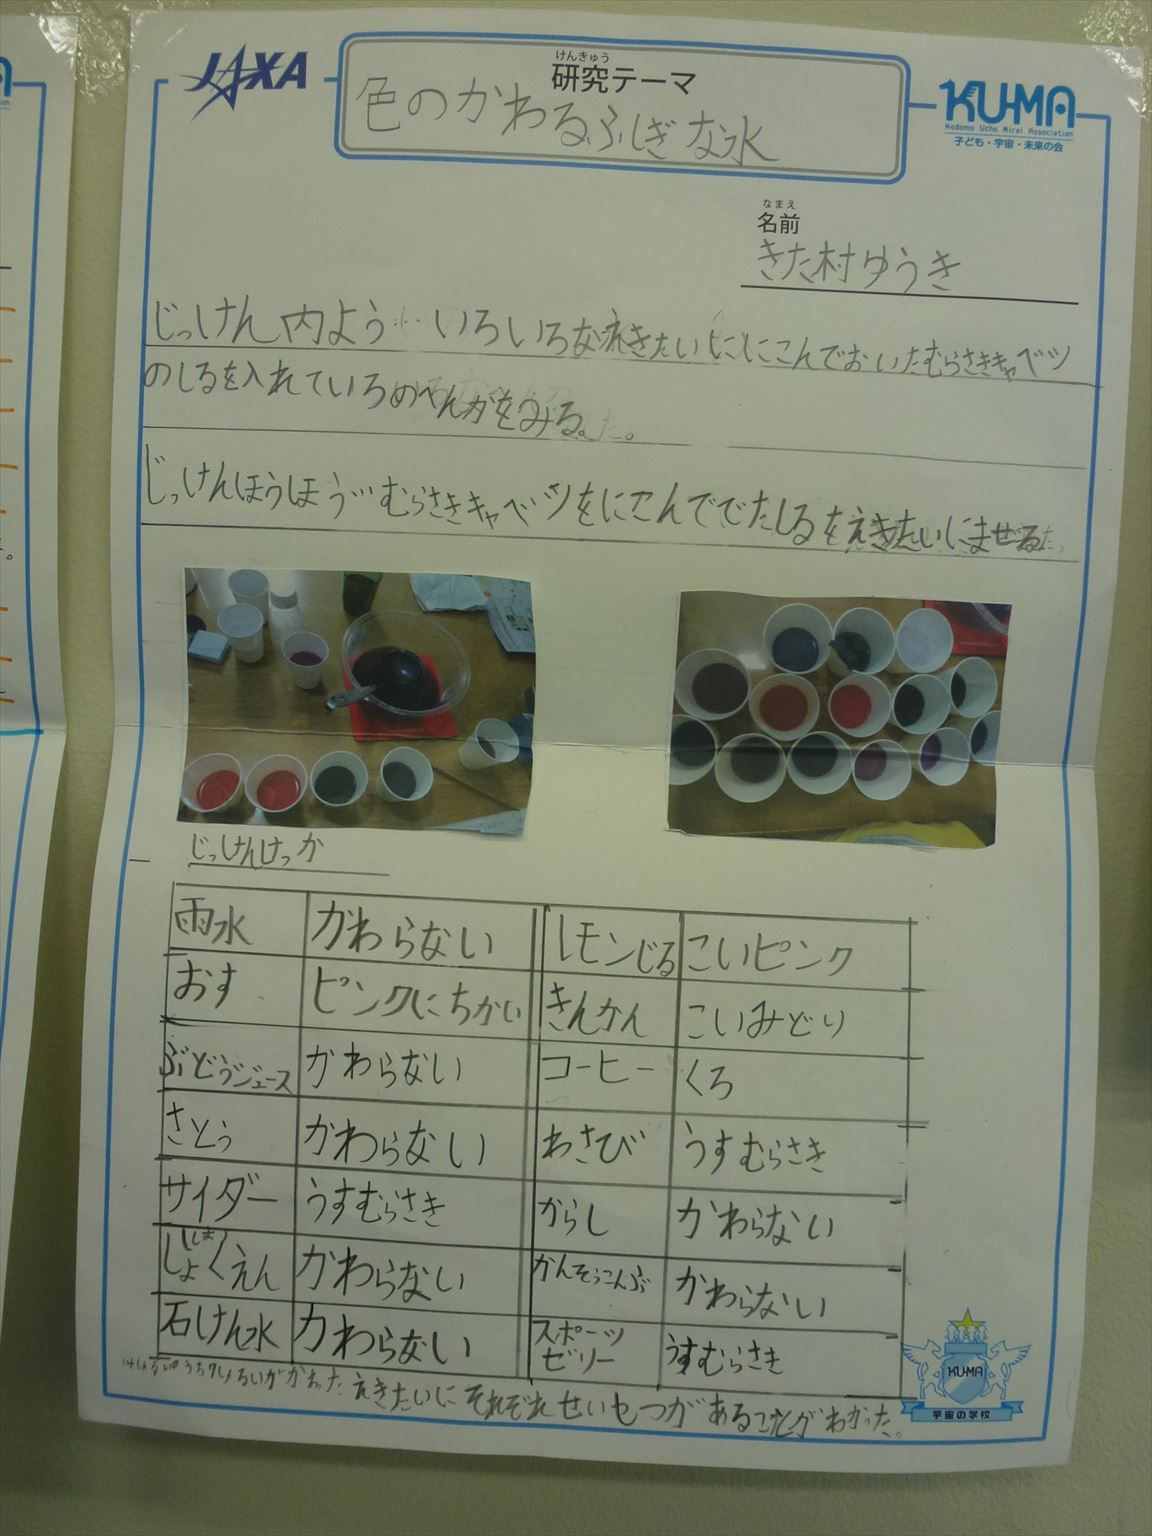 JAXA
けんきゅう
研究テーマ
色のかわるふしぎな水
KU-MA
Kodomo Uchu Mirai Association
子ども・宇宙・未来の会
なまえ
名前
きた村ゆうき
じっけん内よう…いろいろなえきたいににこんでおいたむらさきキャベツ
のしるを入れていろのへんかをみる。
じっけんほうほう…むらさきキャベツをにこんででたしるをえきたいにまぜる
じっけんけっか
雨水 かわらない レモンじる こいピンク
おす ピンクにちかい きんかん こいみどり
ぶどうジュース かわらない コーヒー くろ
さとう かわらない わさび うすむらさき
サイダー うすむらさき からし かわらない
しょくえん かわらない かんそうこんぶ かわらない
石けん水 かわらない スポーツゼリー うすむらさき
14しゅるいのうち7しゅるいがかわった えきたいにそれぞれせいしつがあることがわかった。
KU-MA
宇宙の学校